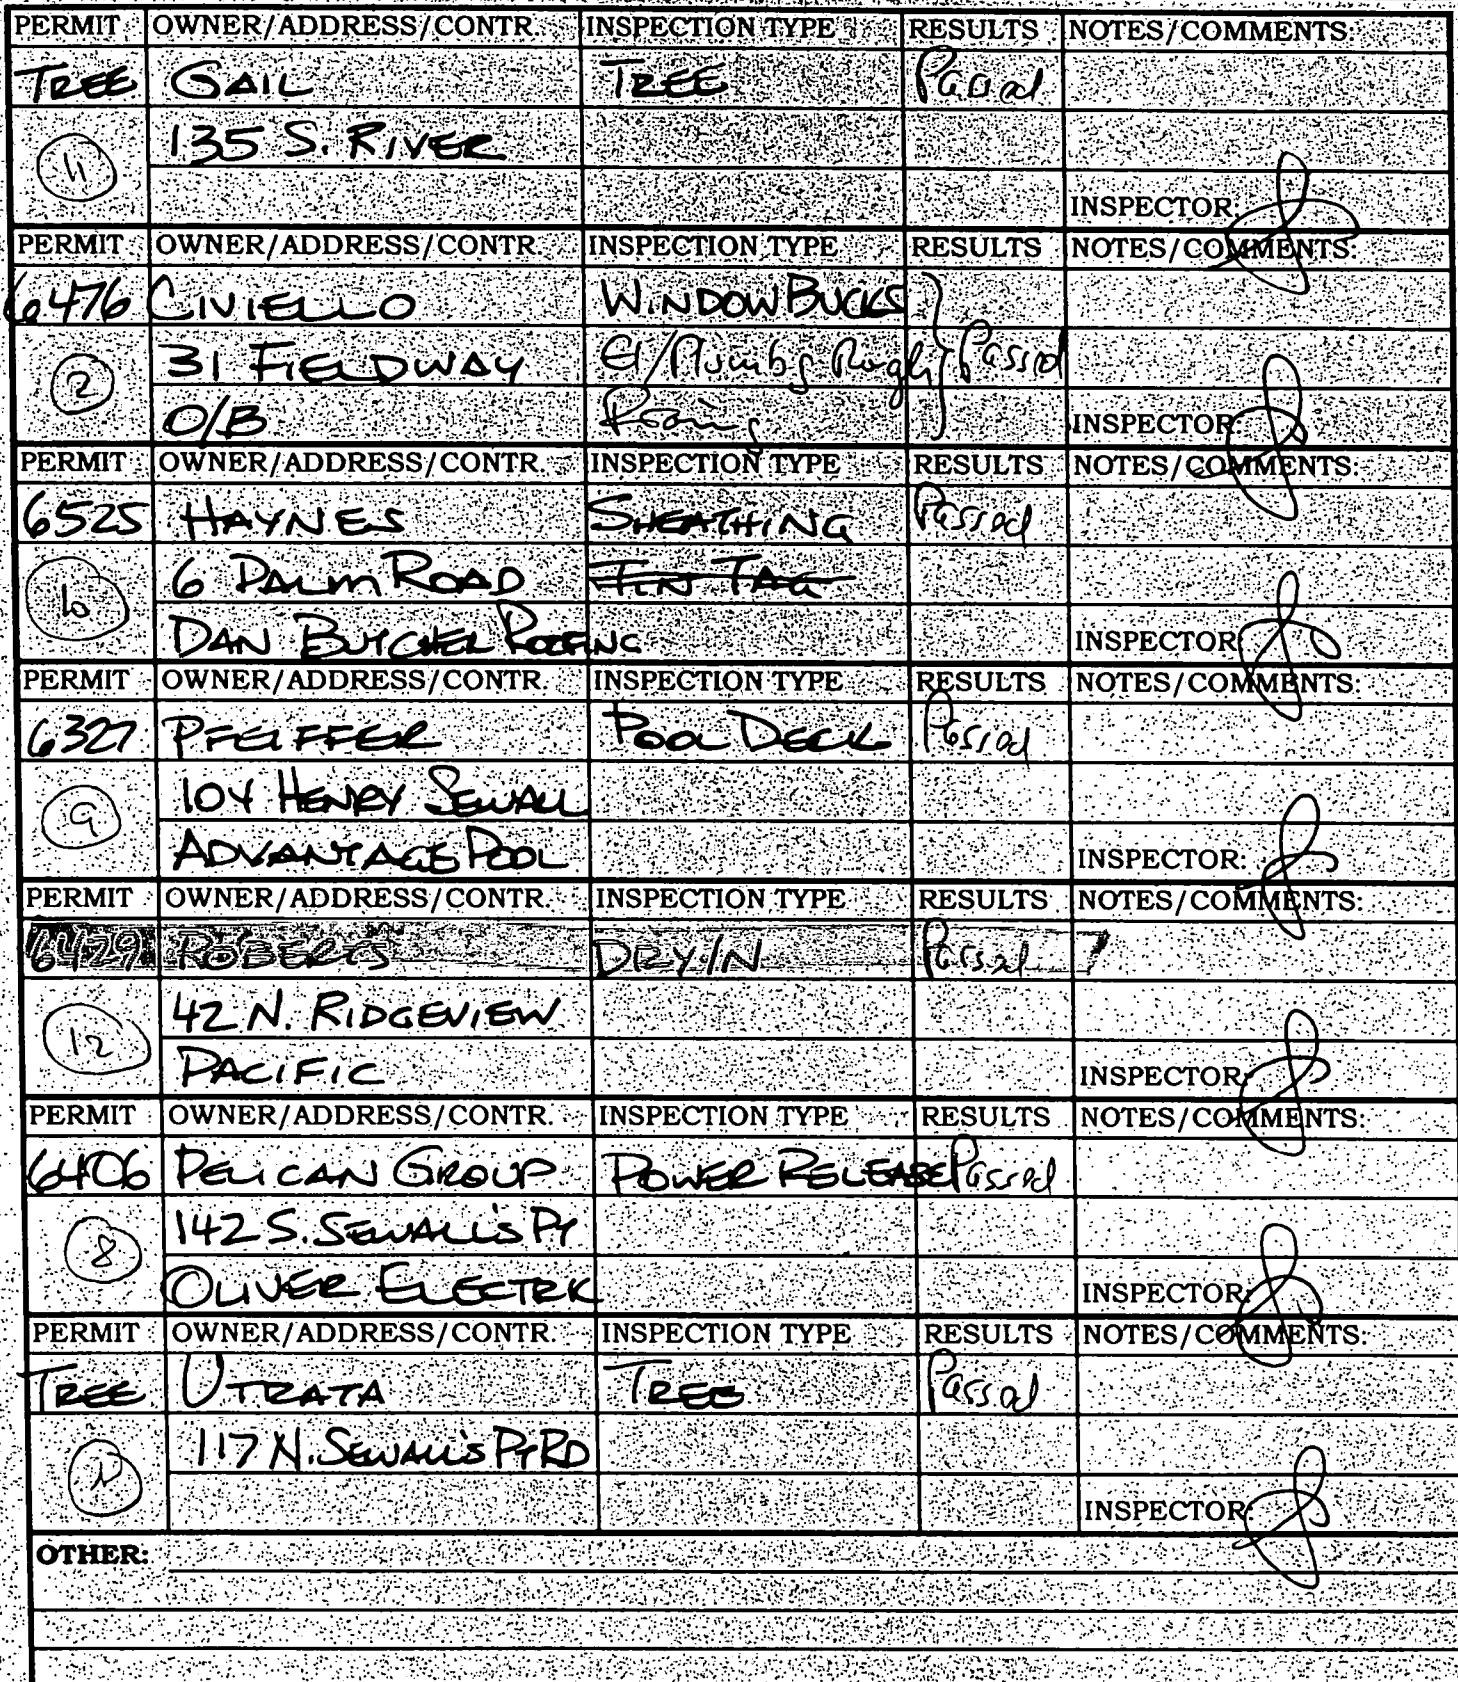 PERMIT OWNER/ADDRESS/CONTR. INSPECTION TYPE RESULTS NOTES/COMMENTS:
TREE GAIL TREE Passed
135 S. RIVER
11
INSPECTOR:
PERMIT OWNER/ADDRESS/CONTR. INSPECTION TYPE RESULTS NOTES/COMMENTS:
6476 CIVIELLO WINDOW BUCKS
2 31 FIELDWAY El/Plumbg Rough Passed
O/B INSPECTOR:
PERMIT OWNER/ADDRESS/CONTR. INSPECTION TYPE RESULTS NOTES/COMMENTS:
6525 HAYNES SHEATHING Passed
6 PALM ROAD TIN TAG
DAN ROOFING INSPECTOR
PERMIT OWNER/ADDRESS/CONTR. INSPECTION TYPE RESULTS NOTES/COMMENTS:
6327 PFEIFFER POOL DECK Passed
9 104 HENRY SEWALL
ADVANTAGE POOL INSPECTOR:
PERMIT OWNER/ADDRESS/CONTR. INSPECTION TYPE RESULTS NOTES/COMMENTS:
6429 ROBERTS DRY-IN Passed
12 42 N. RIDGEVIEW
PACIFIC INSPECTOR
PERMIT OWNER/ADDRESS/CONTR. INSPECTION TYPE RESULTS NOTES/COMMENTS:
6406 PELICAN GROUP POWER RELEASE Passed
8 142 S. SEWALL'S PT
OLIVER ELECTRIC INSPECTOR
PERMIT OWNER/ADDRESS/CONTR. INSPECTION TYPE RESULTS NOTES/COMMENTS:
TREE UTRATA TREE Passed
117 N. SEWALL'S PT RD
INSPECTOR:
OTHER: